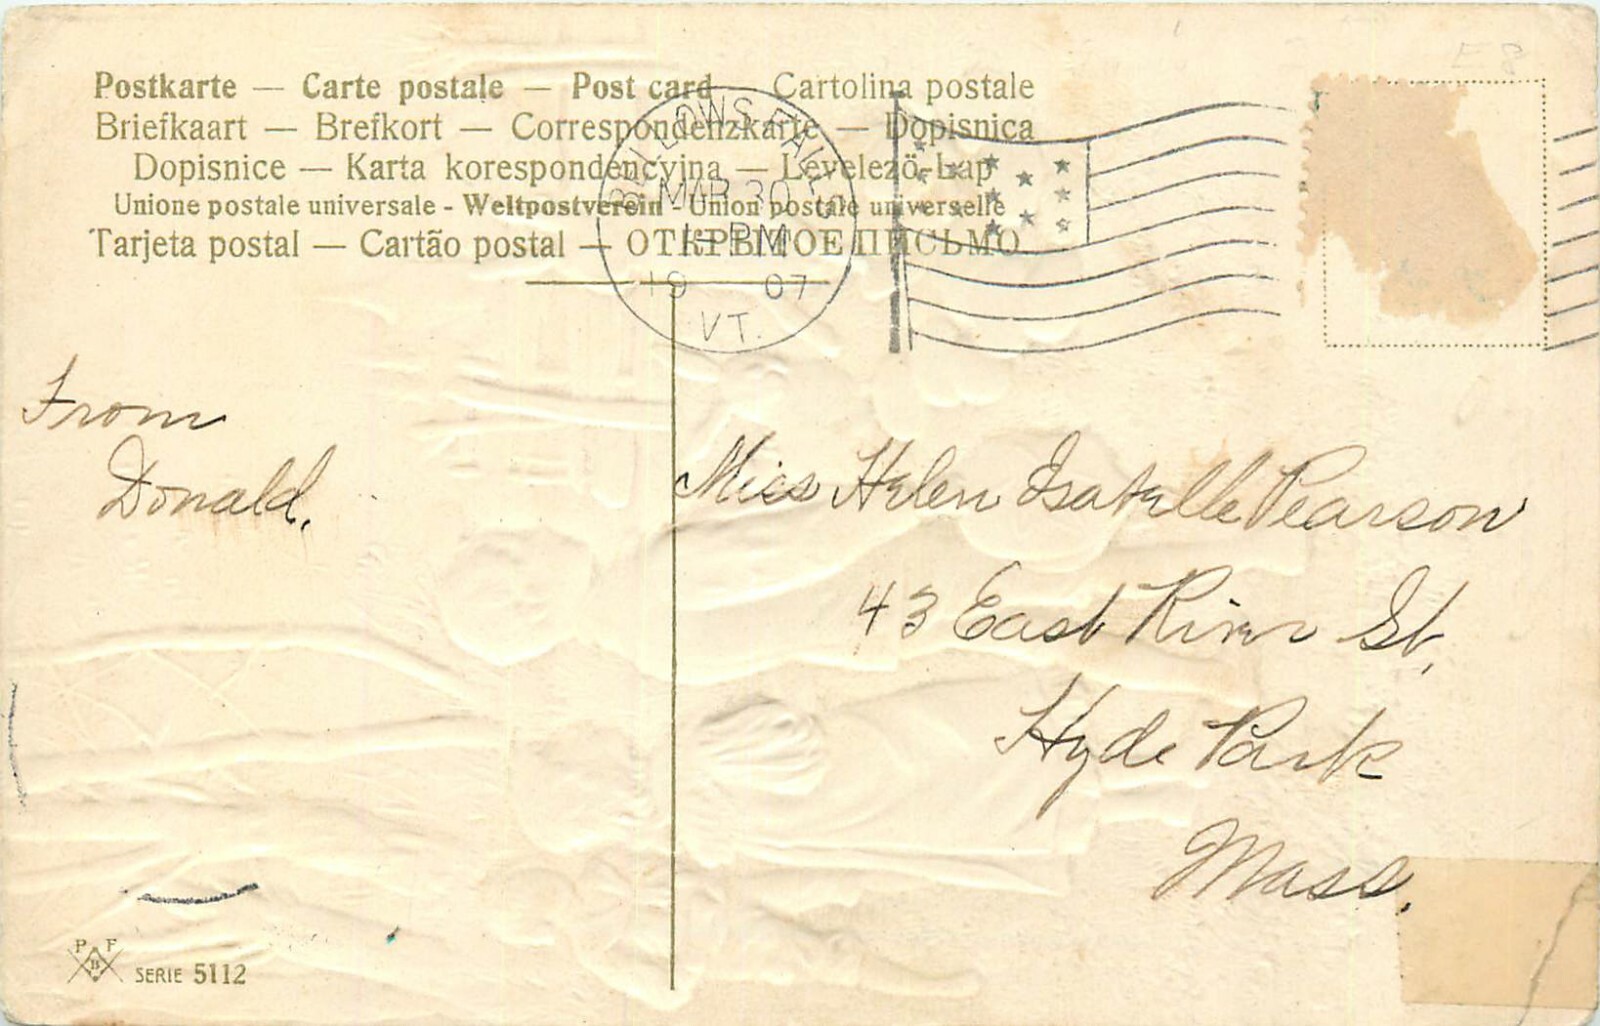 E 8
Postkarte — Carte postale — Post card — Cartolina postale
Briefkaart — Brefkort — Correspondenzkarte — Dopisnica
Dopisnice — Karta korespondencyjna — Levelezö-Lap
Unione postale universale - Weltpostverein - Union postale universelle
Tarjeta postal — Cartão postal — ОТКРЫТОЕ ПИСЬМО
BELLOWS FALLS
MAR 30
1 - PM
19 07
VT.
From
Donald.
Miss Helen Isabelle Pearson
43 East River St.
Hyde Park
Mass.
P F
B
SERIE 5112